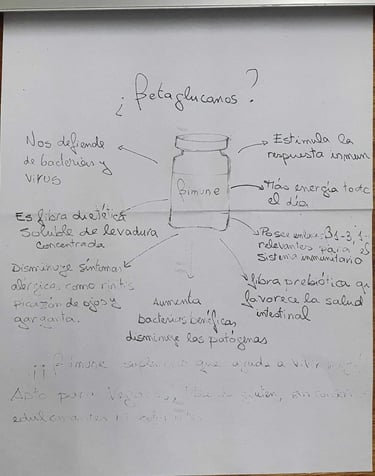 ¿Betaglucanos?
Nos defiende
de bacterias y
virus
Estimula la
respuesta inmun
Bimune
Más energía todo
el día
Es fibra dietétic
Soluble de levadura
concentrada
Posee enlaces β1-3, 1-
relevantes para el
Sistema inmunitario
Disminuye síntomas
alérgicos como rinitis
picazón de ojos y
garganta.
Aumenta
bacterias benéficas,
disminuye las patógenas
fibra prebiótica qu
favorece la salud
intestinal
que ayuda a
Apto para veganos,
edulcorantes